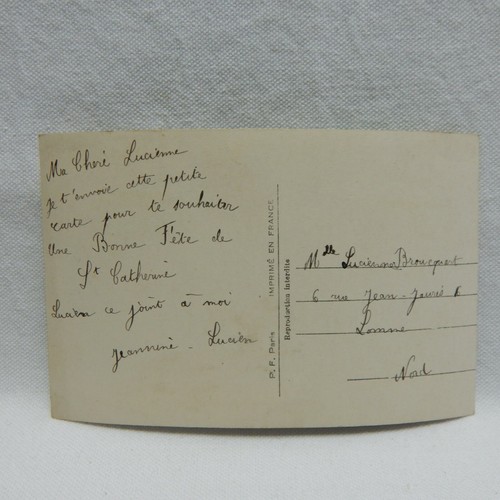 Ma Cheré Lucienne
Je t'envoie cette petite
carte pour te souhaiter
Une Bonne Fête de
St Catheriné
Lucien ce joint à moi
Jeanniné - Lucien
P. F. Paris IMPRIMÉ EN FRANCE
Reproduction Interdite
Mlle Lucienne Broucquet
6 rue Jean-Jaurés
Lomme
Nord